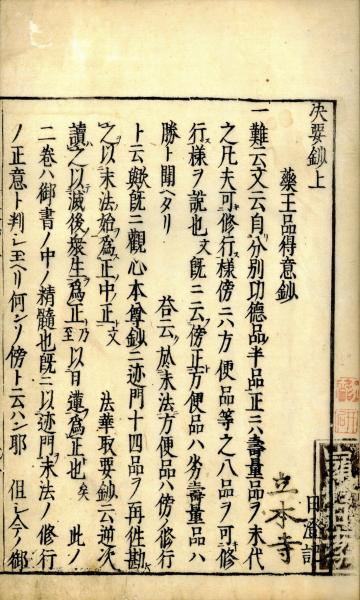 決要鈔上
藥王品得意鈔
日澄記
立本寺
一難云文云自分別功德品半品正ニハ壽量品ヲ末代
之凡夫可修行樣傍ニハ方便品等之八品ヲ可修
行樣ヲ說也文旣ニ云傍正方便品ハ劣壽量品ハ
勝ト聞ヘタリ 答云於末法方便品ハ傍ノ修行
ト云歟旣ニ觀心本尊鈔ニ迹門十四品ヲ再往勘
之以末法始爲正中ノ正文 法華取要鈔云逆次
讀之以滅後衆生爲正乃至以日蓮爲正也矣 此ノ
二卷ハ御書ノ中ノ精髓也旣ニ以迹門末法ノ修行
ノ正意ト判シ玉ヘリ何ソノ傍ト云ハン耶 但シ今ノ御